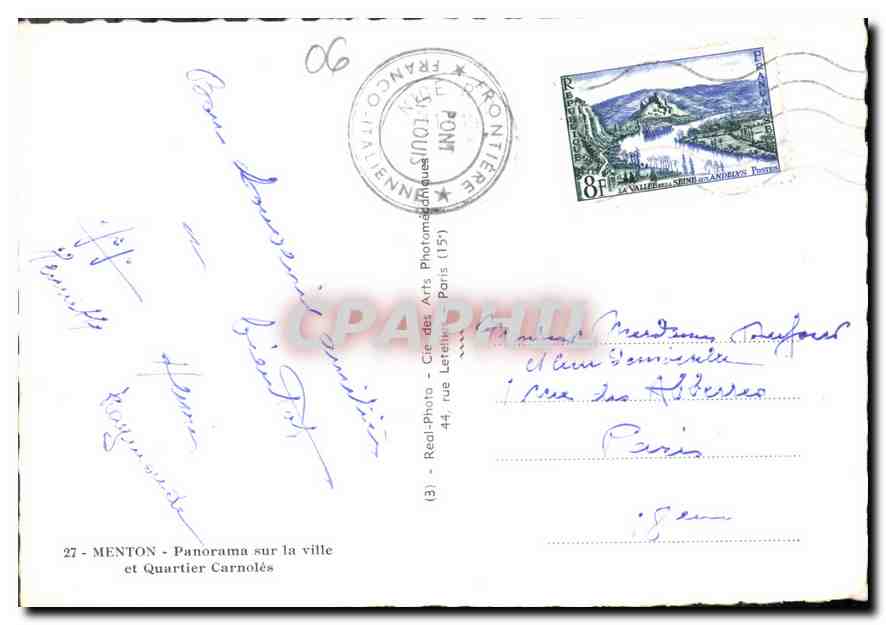 06
★ FRONTIÈRE ★ FRANCO-ITALIENNE
PONT
St LOUIS
REPUBLIQUE FRANÇAISE
8F
LA VALLÉE DE LA SEINE AUX ANDELYS POSTES
Bons Souvenirs amitiés
à bientôt
Henri
Raymonde
(3) - Real-Photo - Cie des Arts Photomécaniques
44, rue Letellier - Paris (15e)
CPAPHIL
Monsieur
rue des Abbesses
Paris
18eme
27 - MENTON - Panorama sur la ville
et Quartier Carnolés